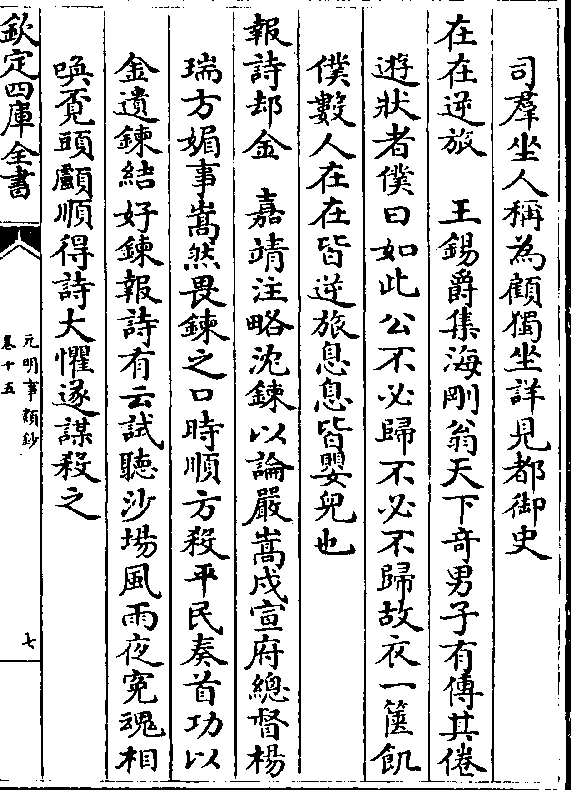 司羣坐人稱為顧獨坐詳見都御史
在在逆旅　王錫爵集海剛翁天下竒男子有傳其倦
遊狀者僕曰如此公不必歸不必不歸故衣一篋飢
僕數人在在皆逆旅息息皆嬰兒也
報詩却金　嘉靖注略沈鍊以論嚴嵩戍宣府總督楊
瑞方媚事嵩然畏鍊之口時順方殺平民奏首功以
金遺鍊結好鍊報詩有云試聽沙場風雨夜寃魂相
喚覓頭顱順得詩大懼遂謀殺之
欽定四庫全書
元明事類鈔
卷十五
七